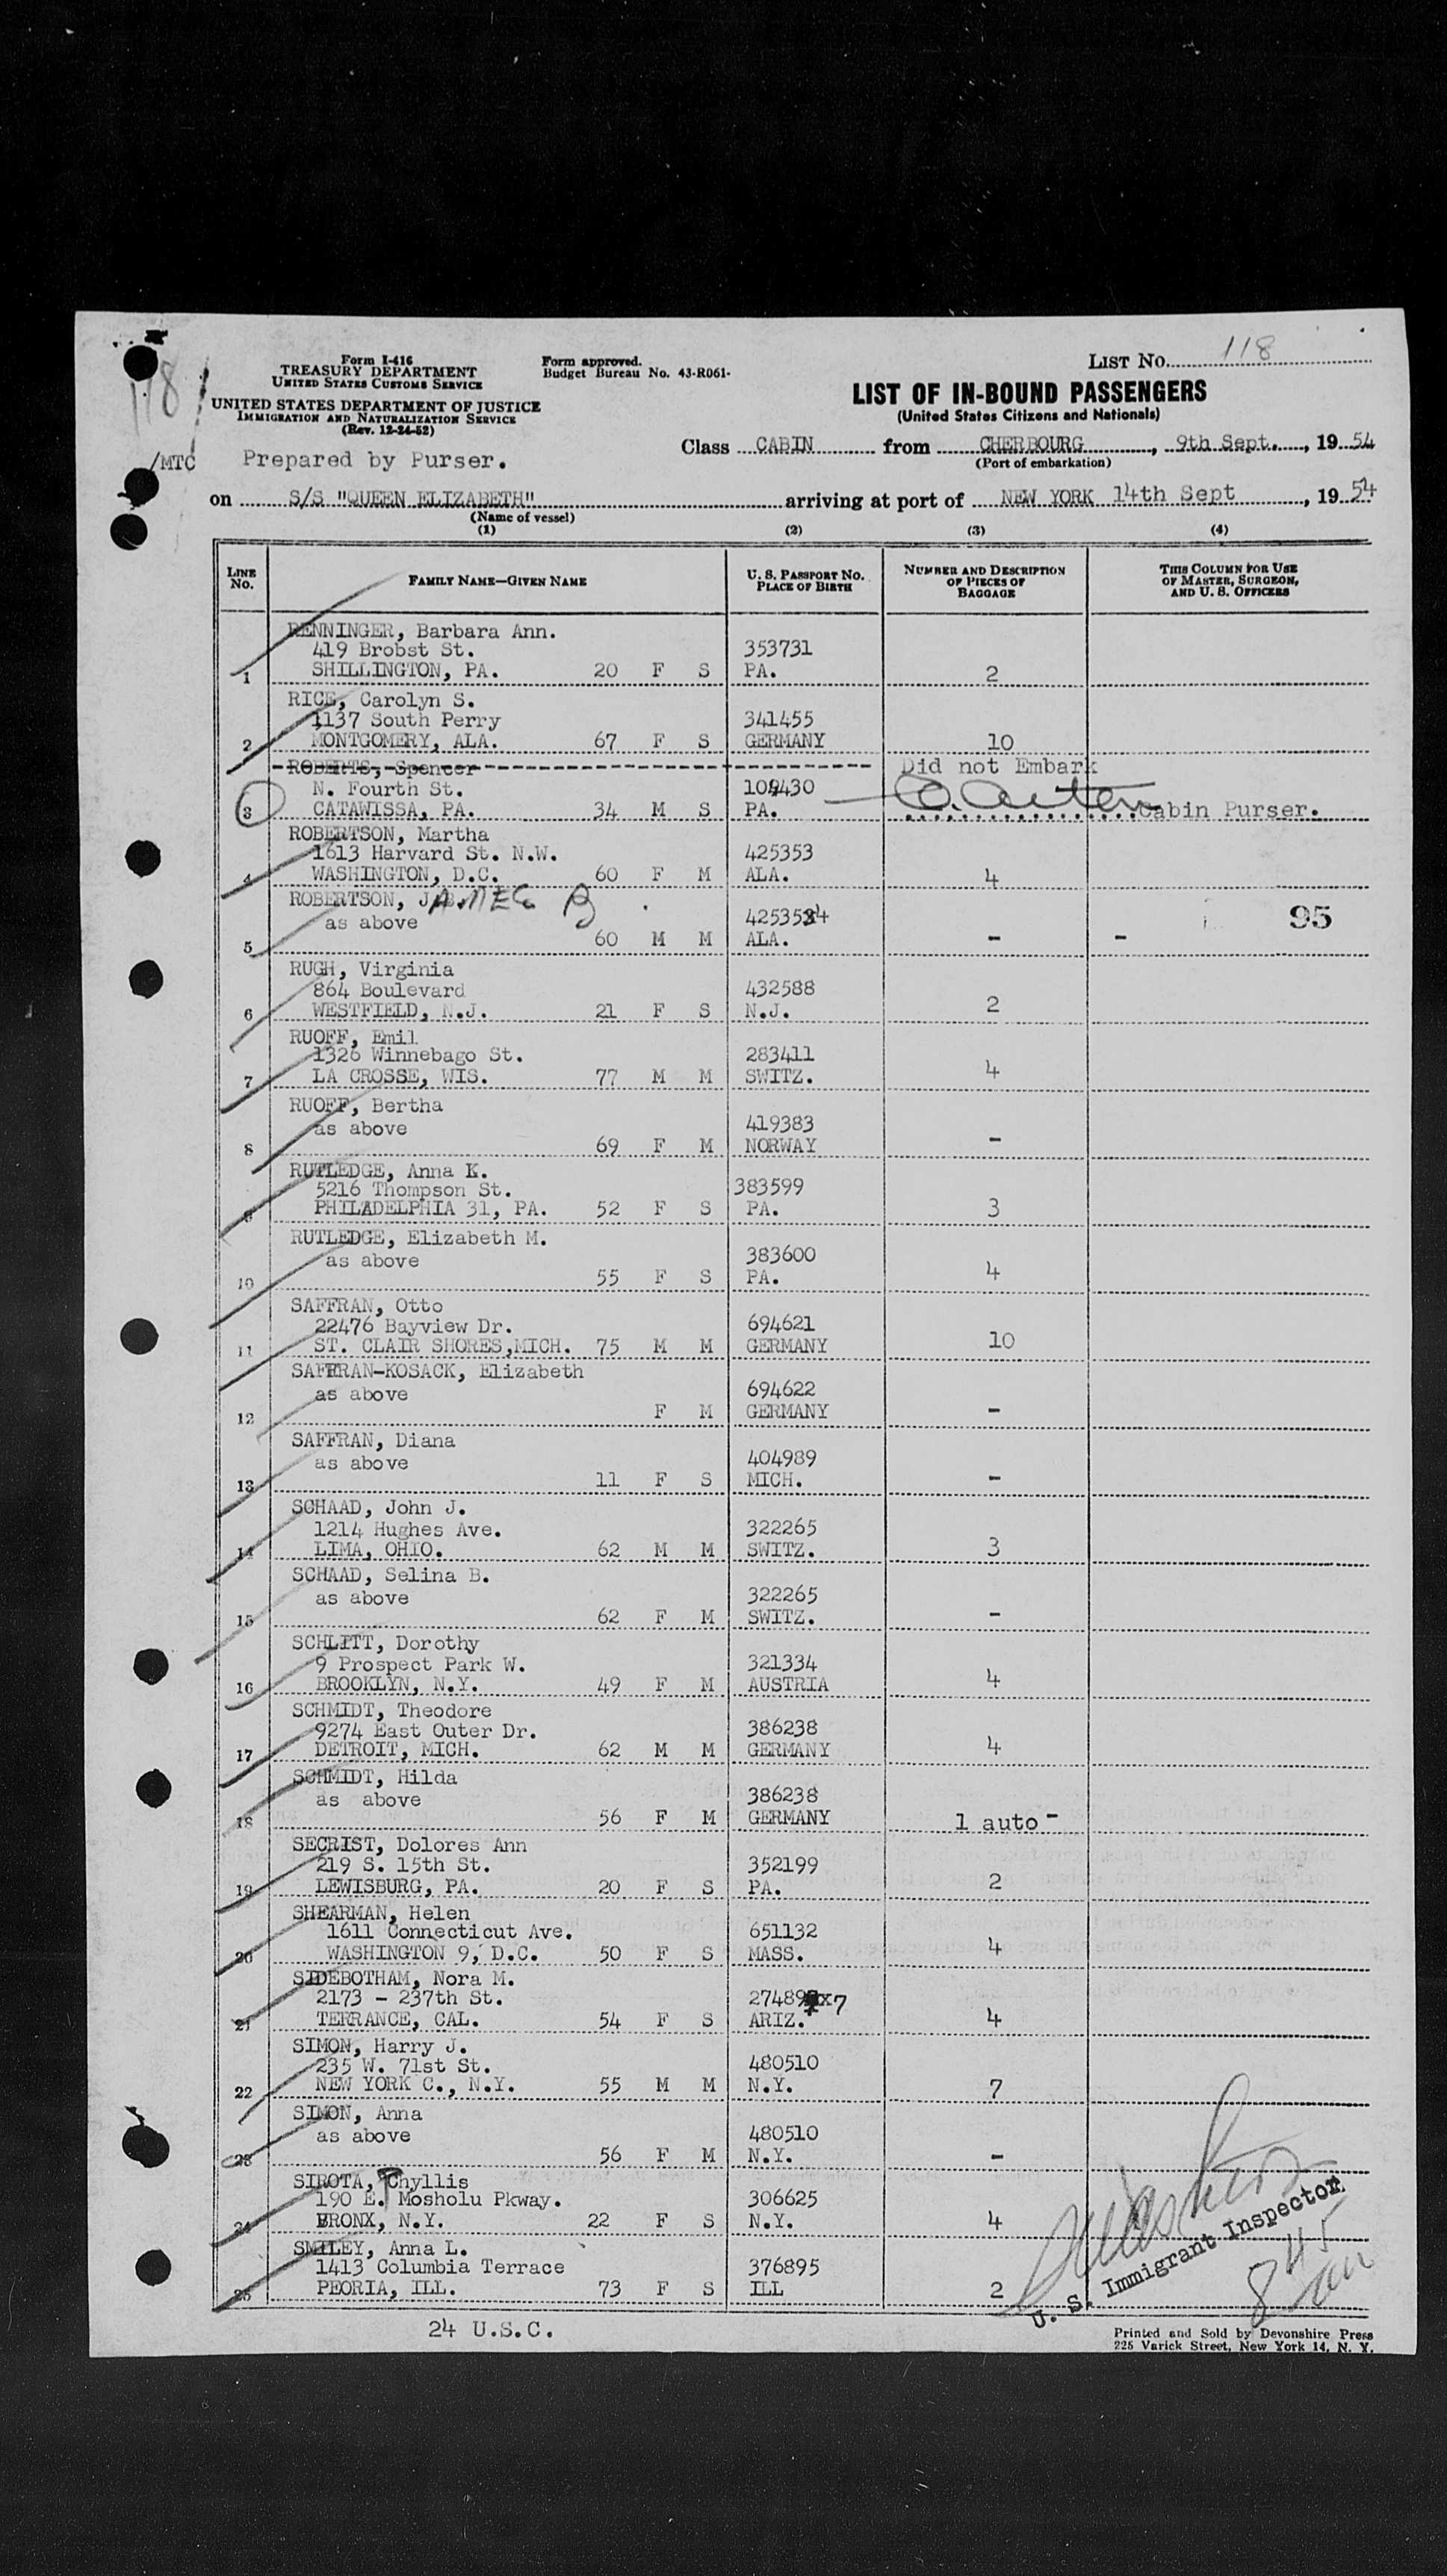 Form I-416
TREASURY DEPARTMENT
UNITED STATES CUSTOMS SERVICE
UNITED STATES DEPARTMENT OF JUSTICE
IMMIGRATION AND NATURALIZATION SERVICE
(Rev. 12-24-52)
Form approved.
Budget Bureau No. 43-R061-
LIST NO. 118
118
LIST OF IN-BOUND PASSENGERS
(United States Citizens and Nationals)
/MTC Prepared by Purser.
Class CABIN from CHERBOURG, 9th Sept., 1954
(Port of embarkation)
on S/S "QUEEN ELIZABETH" arriving at port of NEW YORK 14th Sept, 1954
(Name of vessel)
(1) (2) (3) (4)
LINE NO. FAMILY NAME—GIVEN NAME U. S. PASSPORT NO. PLACE OF BIRTH NUMBER AND DESCRIPTION OF PIECES OF BAGGAGE THIS COLUMN FOR USE OF MASTER, SURGEON, AND U. S. OFFICERS
RENNINGER, Barbara Ann.
419 Brobst St. 353731
1 SHILLINGTON, PA. 20 F S PA. 2
RICE, Carolyn S.
1137 South Perry 341455
2 MONTGOMERY, ALA. 67 F S GERMANY 10
ROBERTS, Spencer Did not Embark
N. Fourth St. 109430
3 CATAWISSA, PA. 34 M S PA. Cabin Purser.
ROBERTSON, Martha
1613 Harvard St. N.W. 425353
4 WASHINGTON, D.C. 60 F M ALA. 4
ROBERTSON, JAMES B.
as above 425354 95
5 60 M M ALA. - -
RUGH, Virginia
864 Boulevard 432588
6 WESTFIELD, N.J. 21 F S N.J. 2
RUOFF, Emil
1326 Winnebago St. 283411
7 LA CROSSE, WIS. 77 M M SWITZ. 4
RUOFF, Bertha
as above 419383
8 69 F M NORWAY -
RUTLEDGE, Anna K.
5216 Thompson St. 383599
9 PHILADELPHIA 31, PA. 52 F S PA. 3
RUTLEDGE, Elizabeth M.
as above 383600
10 55 F S PA. 4
SAFFRAN, Otto
22476 Bayview Dr. 694621
11 ST. CLAIR SHORES,MICH. 75 M M GERMANY 10
SAFFRAN-KOSACK, Elizabeth
as above 694622
12 F M GERMANY -
SAFFRAN, Diana
as above 404989
13 11 F S MICH. -
SCHAAD, John J.
1214 Hughes Ave. 322265
14 LIMA, OHIO. 62 M M SWITZ. 3
SCHAAD, Selina B.
as above 322265
15 62 F M SWITZ. -
SCHLITT, Dorothy
9 Prospect Park W. 321334
16 BROOKLYN, N.Y. 49 F M AUSTRIA 4
SCHMIDT, Theodore
9274 East Outer Dr. 386238
17 DETROIT, MICH. 62 M M GERMANY 4
SCHMIDT, Hilda
as above 386238
18 56 F M GERMANY 1 auto -
SECRIST, Dolores Ann
219 S. 15th St. 352199
19 LEWISBURG, PA. 20 F S PA. 2
SHEARMAN, Helen
1611 Connecticut Ave. 651132
20 WASHINGTON 9, D.C. 50 F S MASS. 4
SIDEBOTHAM, Nora M.
2173 - 237th St. 27489x7
21 TERRANCE, CAL. 54 F S ARIZ. 4
SIMON, Harry J.
235 W. 71st St. 480510
22 NEW YORK C., N.Y. 55 M M N.Y. 7
SIMON, Anna
as above 480510
23 56 F M N.Y. -
SIROTA, Phyllis
190 E. Mosholu Pkway. 306625
24 BRONX, N.Y. 22 F S N.Y. 4
SMILEY, Anna L.
1413 Columbia Terrace 376895
25 PEORIA, ILL. 73 F S ILL 2
U. S. Immigrant Inspector
845
24 U.S.C.
Printed and Sold by Devonshire Press
225 Varick Street, New York 14, N. Y.